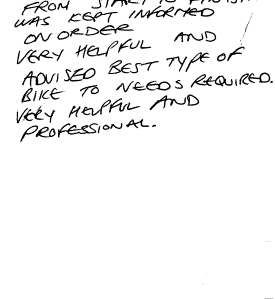 FROM START TO FINISH
WAS KEPT INFORMED
ON ORDER
VERY HELPFUL AND
ADVISED BEST TYPE OF
BIKE TO NEEDS REQUIRED.
VERY HELPFUL AND
PROFESSIONAL.